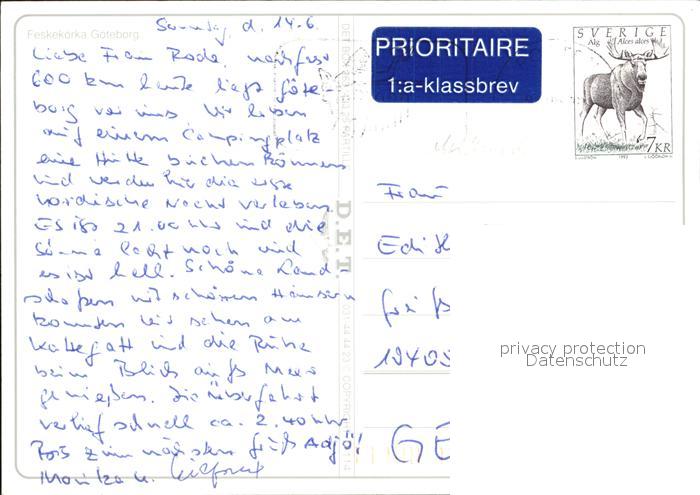 Feskekörka Göteborg.
Sonntag, d. 14.6.
Liebe Frau Rode,
600 km heute liegt Göte-
borg vor uns. Wir haben
auf einem Campingplatz
eine Hütte buchen können
und werden hier die erste
nordische Nacht verleben.
Es ist 21.00 Uhr und die
Sonne lacht noch und
es ist hell. Schöne Land-
schaften mit schönen Häusern
konnten wir sehen am
Kattegatt und die Ruhe
beim Blick aufs Meer
genießen. Die Überfahrt
verlief schnell ca. 2.40 Uhr
Bis zum nächsten Gruß Adjö!
Monika u.
PRIORITAIRE
1:a-klassbrev
SVERIGE
Älg Alces alces
7 KR
D.E.T.
Frau
Edith
19405
GE
privacy protection
Datenschutz